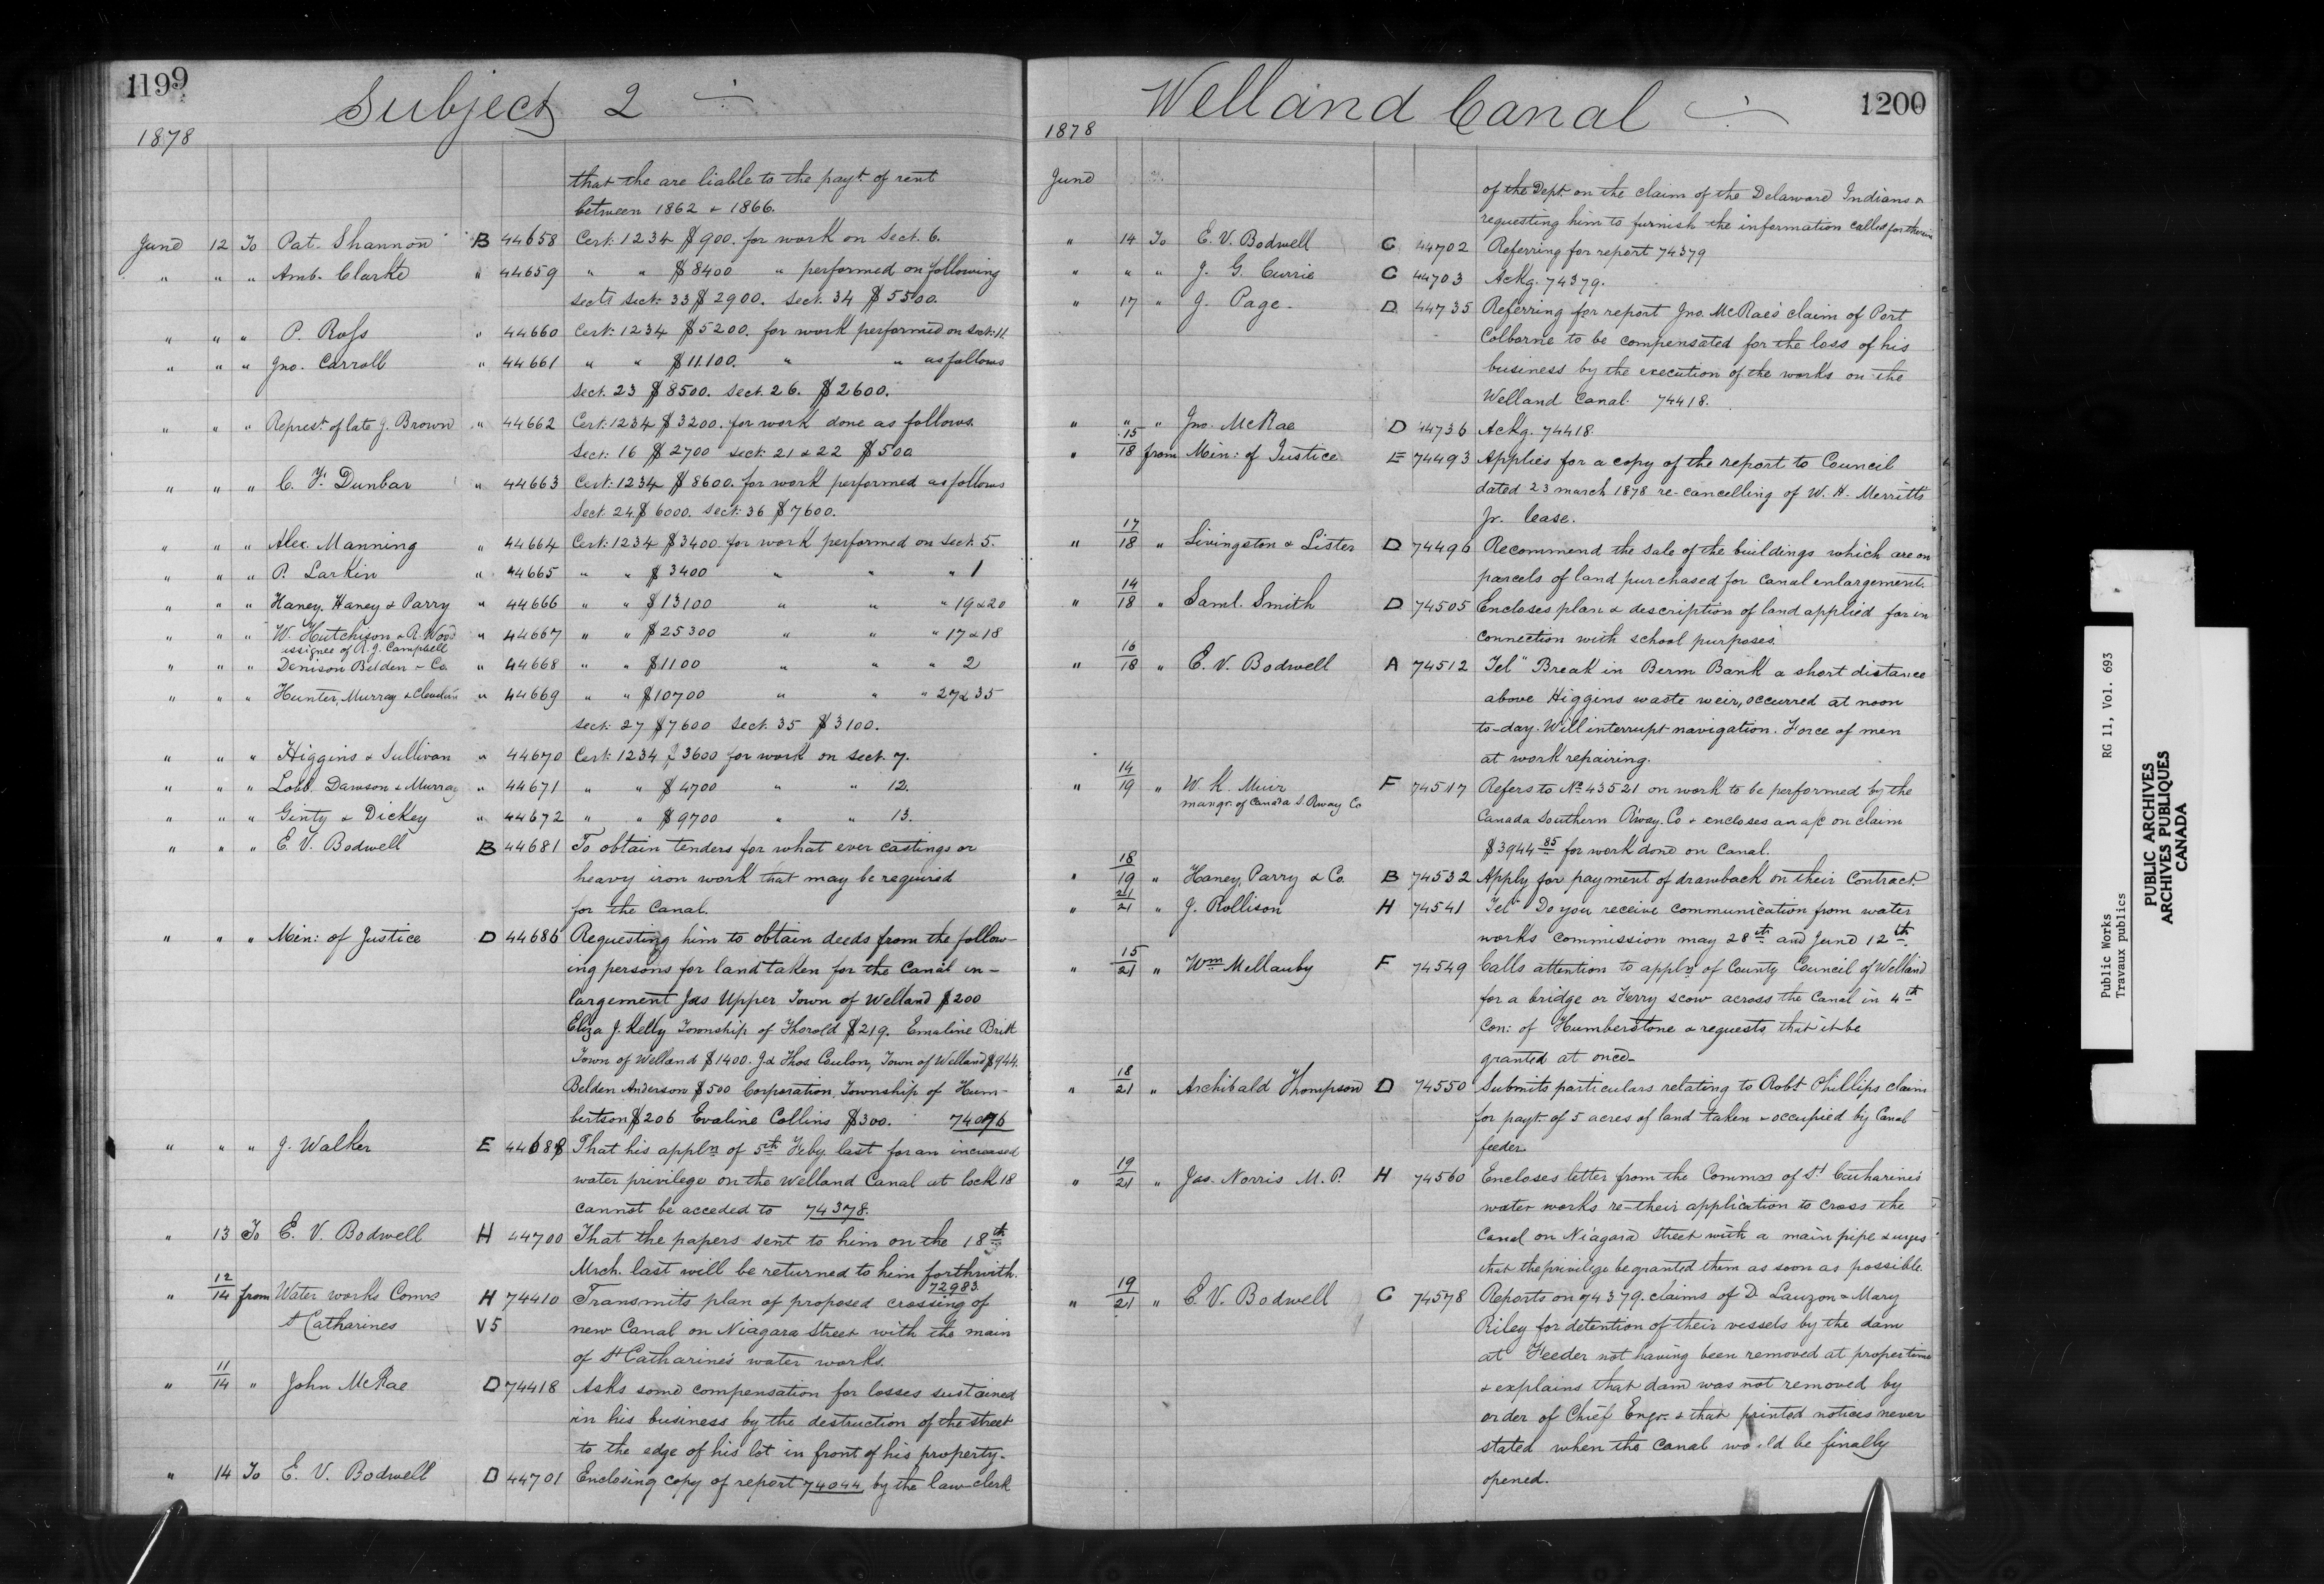 1199
Subject 2 ÷
1878
that the are liable to the payt. of rent
between 1862 & 1866.
June 12 To Pat. Shannon B 44658 Cert. 1234 $900. for work on Sect. 6.
" " " Amb. Clarke " 44659 " " $8400 " performed on following
sects sect. 33 $2900. sect. 34 $5500.
" " " P. Ross " 44660 Cert. 1234 $5200. for work performed on sect. 11.
" " " Jno. Carroll " 44661 " " $11.100. " " as follows
Sect. 23 $8500. sect. 26. $2600.
" " " Represt. of late J. Brown " 44662 Cert. 1234 $3200. for work done as follows.
Sect. 16 $2700 sect. 21 & 22 $500
" " " C. F. Dunbar " 44663 Cert. 1234 $8600. for work performed as follows
Sect. 24 $6000. Sect. 36 $7600.
" " " Alex. Manning " 44664 Cert. 1234 $3400 for work performed on sect. 5.
" " " P. Larkin " 44665 " " $3400 " " " 1
" " " Haney, Haney & Parry " 44666 " " $13100 " " " 19 & 20
" " " W. Hutchison & R. Wood " 44667 " " $25300 " " " 17 & 18
issignee of R. J. Campbell
" " " Denison Belden & Co. " 44668 " " $1100 " " " 2
" " " Hunter, Murray & " 44669 " " $10700 " " " 27 & 35
sect. 27 $7600 sect. 35 $3100.
" " " Higgins & Sullivan " 44670 Cert. 1234 $3600 for work on sect. 7.
" " " Lobb. Dawson & Murray " 44671 " " $4700 " " 12.
" " " Ginty & Dickey " 44672 " " $9700 " " 13.
" " " E. V. Bodwell B 44681 To obtain tenders for what ever castings or
heavy iron work that may be required
for the Canal.
" " " Min: of Justice D 44686 Requesting him to obtain deeds from the follow-
ing persons for land taken for the Canal in-
largement Jas Upper Town of Welland $200
Eliza J. Kelly Township of Thorold $219. Emaline Britt
Town of Welland $1400. J & Thos Coulon, Town of Welland $944.
Belden Anderson $500 Corporation, Township of Hum-
bertson $206 Evaline Collins $300. 74076
" " " J. Walker E 44688 That his appln of 5th Feby. last for an increased
water privilege on the Welland Canal at lock 18
cannot be acceded to 74378.
" 13 To E. V. Bodwell H 44700 That the papers sent to him on the 18th
Mrch. last will be returned to him forthwith.
72983.
" 12/14 from Water works Comrs H 74410 Transmits plan of proposed crossing of
St Catharines V5 new Canal on Niagara Street with the main
of St Catharine's water works.
" 11/14 " John McRae D 74418 Asks some compensation for losses sustained
in his business by the destruction of the street
to the edge of his lot in front of his property.
" 14 To E. V. Bodwell D 44701 Enclosing copy of report 74044 by the law clerk
Welland Canal ÷ 1200
1878
June of the Dept. on the claim of the Delaware Indians &
requesting him to furnish the information called for therein
" 14 To E. V. Bodwell C 44702 Referring for report 74379
" " " J. G. Currie C 44703 Ackg. 74379.
" 17 " J. Page. D 44735 Referring for report Jno. McRae's claim of Port
Colborne to be compensated for the loss of his
business by the execution of the works on the
Welland Canal. 74418.
" " " Jno. McRae D 44736 Ackg. 74418.
" 15/18 from Min: of Justice E 74493 Applies for a copy of the report to Council
dated 23 march 1878 re-cancelling of W. H. Merritt's
Jr. lease.
" 17/18 " Livingston & Lister D 74496 Recommend the sale of the buildings which are on
parcels of land purchased for Canal enlargement.
" 14/18 " Saml. Smith D 74505 Encloses plan & description of land applied for in
connection with school purposes.
" 16/18 " E. V. Bodwell A 74512 Tel" Break in Berm Bank a short distance
above Higgins waste weir, occurred at noon
to-day. Will interrupt navigation. Force of men
at work repairing.
" 14/19 " W. K. Muir F 74517 Refers to No 43521 on work to be performed by the
mangr. of Canada S. Rway Co
Canada Southern R'way. Co & encloses an a/c on claim
$3944.85 for work done on Canal.
" 18/19 " Haney, Parry & Co. B 74532 Apply for payment of drawback on their Contract.
" 21/21 " J. Rollison H 74541 Tel" Do you receive communication from water
works commission may 28th and June 12th.
" 15/21 " Wm Mellanby F 74549 Calls attention to appln of County Council of Welland
for a bridge or Ferry scow across the Canal in 4th
Con: of Humberstone & requests that it be
granted at once-
" 18/21 " Archibald Thompson D 74550 Submits particulars relating to Robt Phillips claim
for payt. of 5 acres of land taken & occupied by Canal
feeder.
" 19/21 " Jas. Norris M. P. H 74560 Encloses letter from the Commrs of St Catharine's
water works re-their application to cross the
Canal on Niagara Street with a main pipe & urges
that the privilege be granted them as soon as possible.
" 19/21 " E. V. Bodwell C 74578 Reports on 74379. claims of D. Lauzon & Mary
Riley for detention of their vessels by the dam
at Feeder not having been removed at proper time
& explains that dam was not removed by
order of Chief Engr. & that printed notices never
stated when the Canal would be finally
opened.
Public Works RG 11, Vol. 693
Travaux publics
PUBLIC ARCHIVES
ARCHIVES PUBLIQUES
CANADA